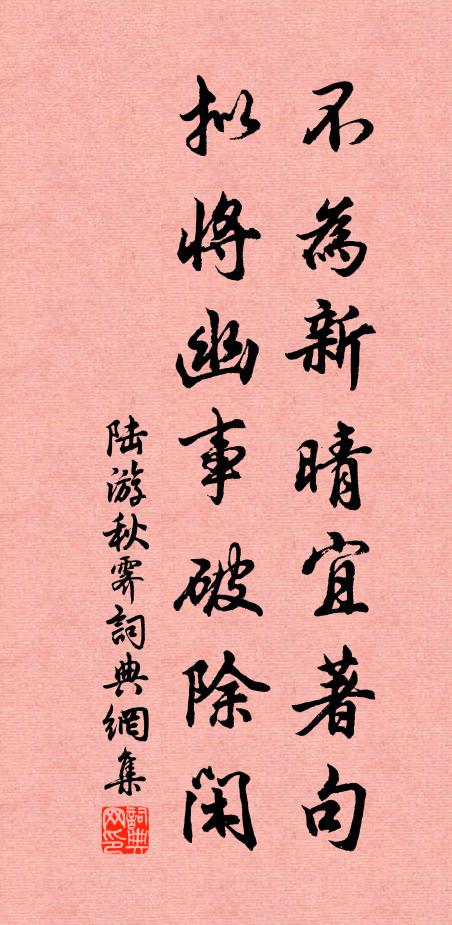 不為新晴宜著句
拟將幽事破除闲
陆游秋霁詞典網集
詞典网印